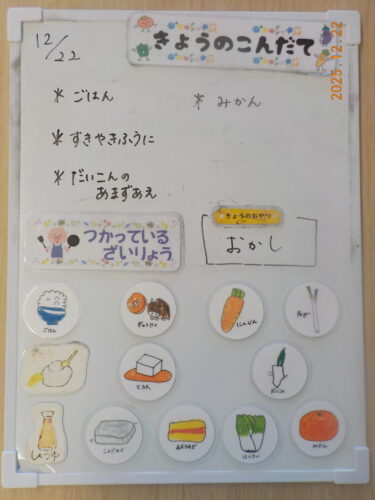 12/22
きょうのこんだて
2025.12.22
＊ごはん
＊みかん
＊すきやきふうに
＊だいこんの
あまずあえ
つかっている
ざいりょう
きょうのおやつ
おかし
ごはん
ぎゅうにく
にんじん
ねぎ
とうふ
だいこん
しょうゆ
こんにゃく
あぶらあげ
はくさい
みかん